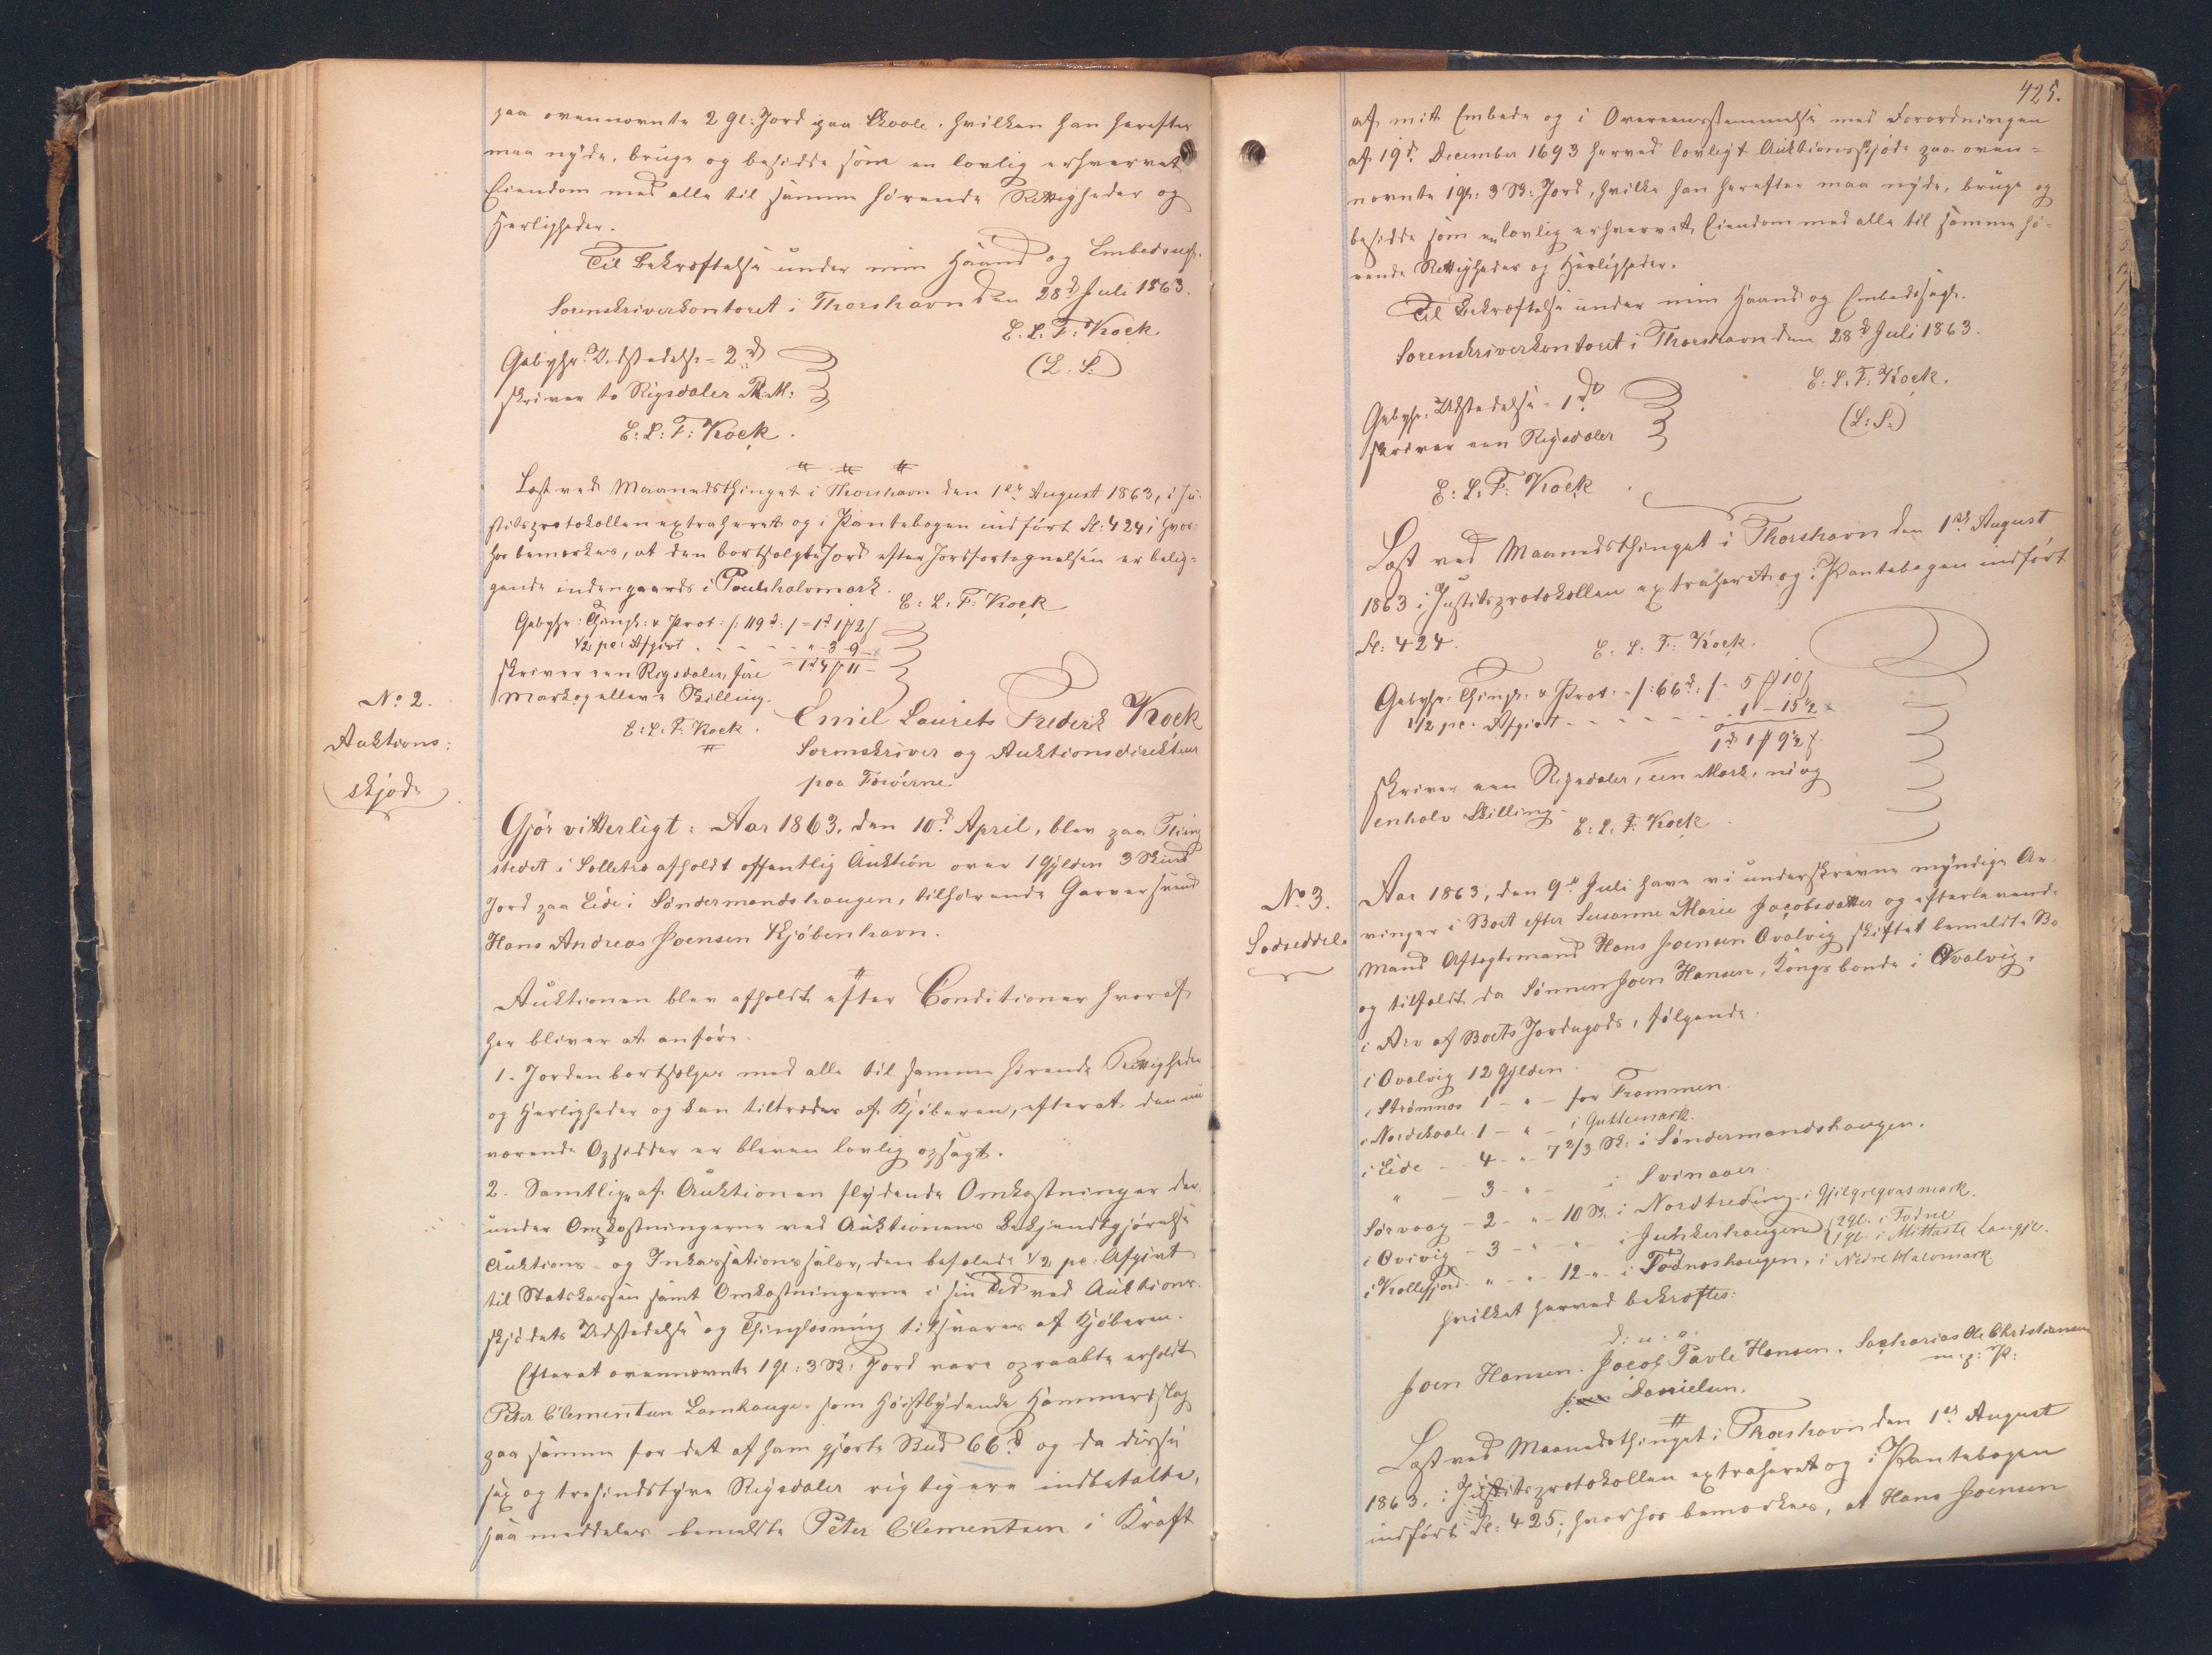 paa ovennævnte 2 Gl: Jord paa Skaale. hvilken han herefter
maa nyde, bruge og besidde som en lovlig erhvervet
Eiendom med alle til samme hørende Rettigheder og
Herligheder.
Til Bekræftelse under min Haand og Embedssegl.
Sorenskriverkontoret i Thorshavn den 28d Juli 1863.
E. L. F: Kock
(L. S.)
Gebyhr: Udstedelse = 2d
skriver to Rigsdaler R.M:
E: L: F: Kock.
Læst ved Maanedsthinget i Thorshavn den 1ste August 1863, i Ju-
stitsprotokollen extraheret og i Pantebogen indført Fl: 424, hvor-
hos bemærkes, at den bortsolgte Jord efter Jordfortegnelsen er belig-
gende indengaards i Poulshalvmark.
E: L: F: Kock
Gebyhr: Thingl: & Prot: /: 119d: / = 1d 1 2
1/2 pc: Afgivt . - - - - " 3 9 -
skriver een Rigsdaler, fire = 1d 4 11 -
Mark og elleve Skilling.
E: L: F: Kock.
No 2.
Auktions:
skjøde
Emil Laurits Frederik Kock
Sorenskriver og Auktionsdirekteur
paa Færøerne.
Gjør vitterligt: Aar 1863, den 10d April, blev paa Thing
stedet i Selletræ afholdt offentlig Auktion over 1 Gylden 3 Skind
Jord paa Eide i Søndermandshaugen, tilhørende Garversvend
Hans Andreas Joensen Kjøbenhavn.
Auktionen blev afholdt efter Conditioner hvoraf
her bliver at anføre.
1. Jorden bortsælges med alle til samme hørende Rettigheder
og Herligheder og kan tiltrædes af Kjøberen, efterat den nu
værende Opsidder er bleven lovlig opsagt.
2. Samtlige af Auktionen flydende Omkostninger der-
under Omkostningerne ved Auktionens Bekjendtgjørelse
Auktions- og Inkassationssalær, den befalede 1/2 pc. Afgivt
til Statskassen samt Omkostningerne i sin Tid ved Auktions-
skjødets Udstedelse og Thinglæsning tilsvares af Kjøberen.
Efterat ovennævnte 1 gl: 3 Sk: Jord vare opraabte erholdt
Peter Clementsen Lamhauge som Høistbydende Hammerslag
paa samme for det af ham gjorte Bud 66d og da disse
sex og tresindstyve Rigsdaler rigtig ere indbetalte,
saa meddeles bemeldte Peter Clementsen i Kraft
425.
af mit Embede og i Overeensstemmelse med Forordningen
af 19d December 1693 herved lovligt Auktionsskjøde paa oven=
nævnte 1 gl: 3 Sk: Jord, hvilke han herefter maa nyde, bruge og
besidde som en lovlig erhvervet, Eiendom med alle til samme hø-
rende Rettigheder og Herligheder.
Til Bekræftelse under min Haand og Embedssegl.
Sorenskriverkontoret i Thorshavn den 28d Juli 1863.
E. L. F: Kock.
(L: S:)
Gebyhr: Udstedelse = 1d
skriver een Rigsdaler
E: L. F: Kock
Læst ved Maanedsthinget i Thorshavn den 1ste August
1863 i Justitsprotokollen extraheret og i Pantebogen indført
Fl: 424.
E. L. F: Kock.
Gebyhr: Thingl: & Prot: - /: 66d: / - 5 10
1/2 pc. Afgivt - - - - - - 1 - 15 1/2
1d 1 9 1/2
skriver een Rigsdaler, een Mark, ni og
enhalv Skilling.
E. L. F: Kock
No 3.
Lodseddel.
Aar 1863, den 9de Juli have vi underskrevne myndige Ar-
vinger i Boet efter Susanne Marie Jacobsdatter og efterlevende
Mand Aftægtsmand Hans Joensen Qvalvig skiftet bemeldte Bo
og tilfaldt da Sønnen Joen Hansen, Kongsbonde i Qvalvig,
i Arv af Boets Jordegods, følgende.
i Qvalvig 12 Gylden.
i Strømnæs 1 - " - for Frammen.
i Nordskaale 1 - " - i Guttemark.
i Eide - 4 - " - 7 2/3 Sk: i Søndermandshaugen.
" - 3 - " - i Svinaaer.
Sørvaag - 2 - " - 10 Sk. i Nordtreding i Gjilgregvasmark.
i Qvivig - 3 - " - " - i Junkerhaugen {2 gl. i Todne
1 gl. i Mittaste Langje.
i Kollefjord - " - " - 12 " - i Todnæshaugen, i Nedre Halvmark
hvilket herved bekræftes:
D: u: s:
Joen Hansen. Jacob Pavle Hansen. Sacharias Ole Christiansen
m. p: P:
Danielsen.
Læst ved Maanedsthinget i Thorshavn den 1ste August
1863, i Justitsprotokollen extraheret og i Pantebogen
indført Fl: 425, hvorhos bemærkes, at Hans Joensen